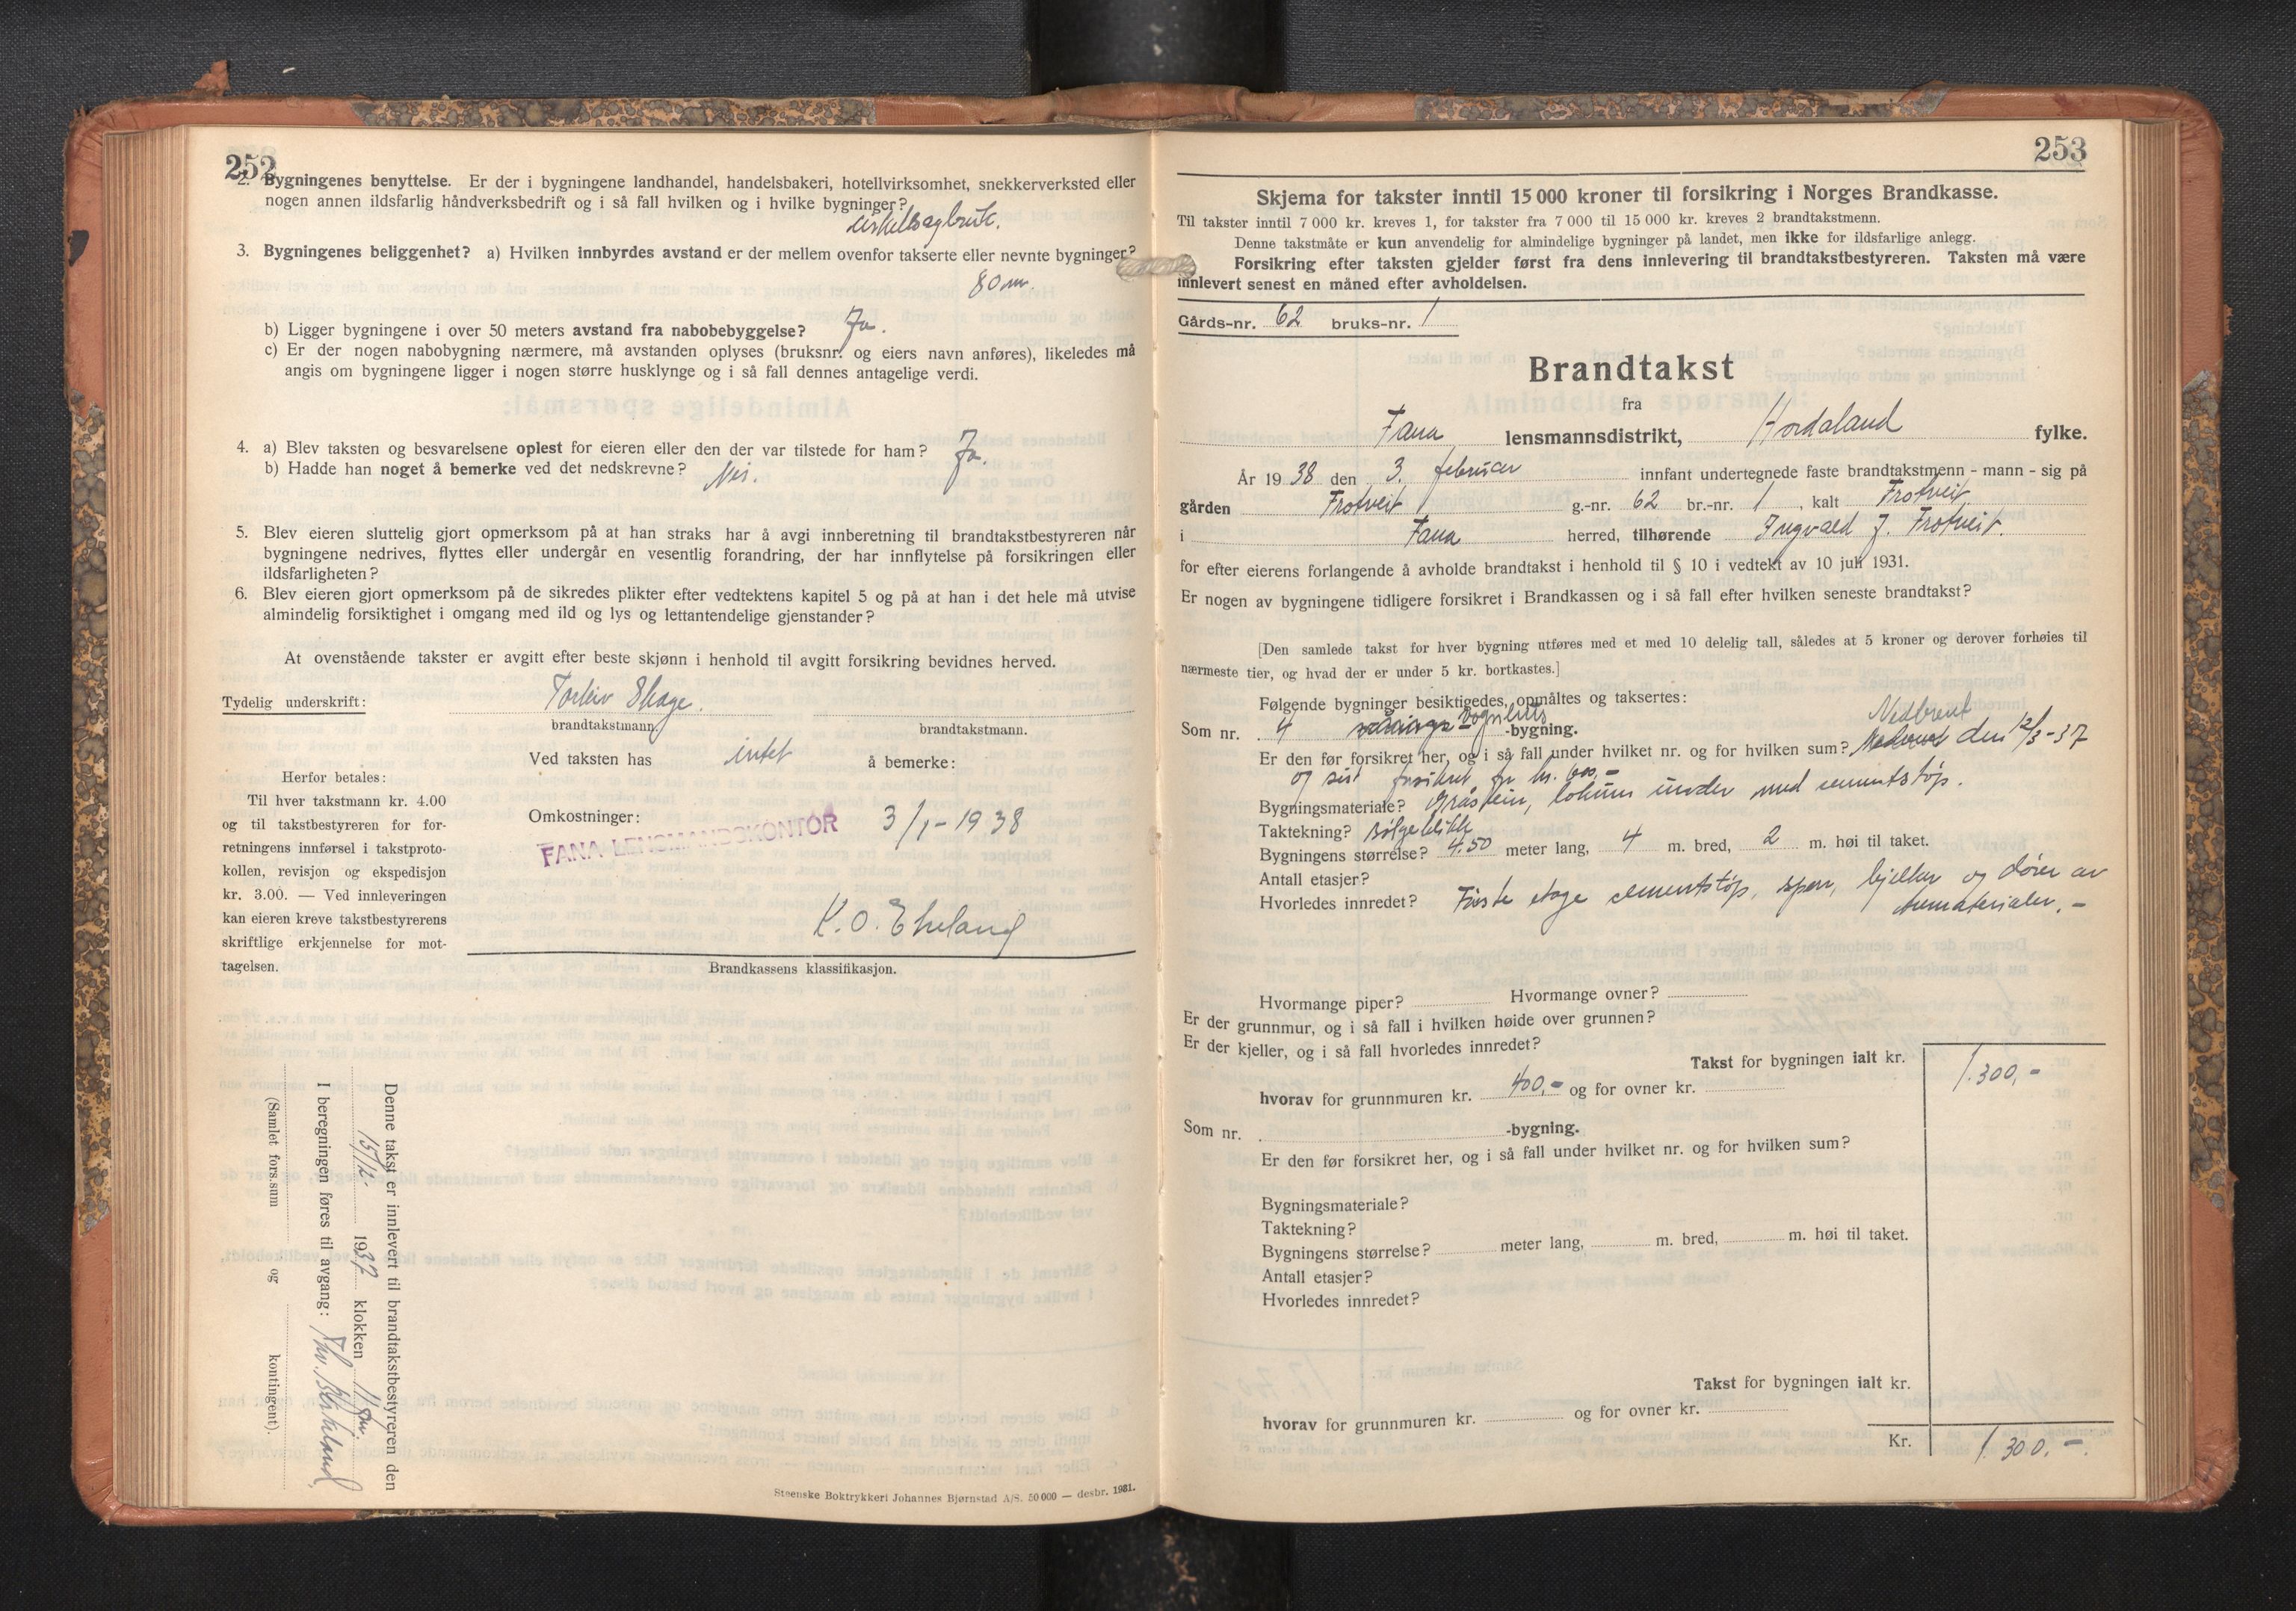 252
2. Bygningenes benyttelse. Er der i bygningene landhandel, handelsbakeri, hotellvirksomhet, snekkerverksted eller
nogen annen ildsfarlig håndverksbedrift og i så fall hvilken og i hvilke bygninger?
sirkelsagbruk.
3. Bygningenes beliggenhet? a) Hvilken innbyrdes avstand er der mellem ovenfor takserte eller nevnte bygninger?
80 m.
b) Ligger bygningene i over 50 meters avstand fra nabobebyggelse? Ja.
c) Er der nogen nabobygning nærmere, må avstanden oplyses (bruksnr. og eiers navn anføres), likeledes må
angis om bygningene ligger i nogen større husklynge og i så fall dennes antagelige verdi.
4. a) Blev taksten og besvarelsene oplest for eieren eller den der var tilstede for ham? Ja.
b) Hadde han noget å bemerke ved det nedskrevne? Nei.
5. Blev eieren sluttelig gjort opmerksom på at han straks har å avgi innberetning til brandtakstbestyreren når
bygningene nedrives, flyttes eller undergår en vesentlig forandring, der har innflytelse på forsikringen eller
ildsfarligheten?
6. Blev eieren gjort opmerksom på de sikredes plikter efter vedtektens kapitel 5 og på at han i det hele må utvise
almindelig forsiktighet i omgang med ild og lys og lettantendelige gjenstander?
At ovenstående takster er avgitt efter beste skjønn i henhold til avgitt forsikring bevidnes herved.
Tydelig underskrift: Torleiv Skage.
brandtakstmann. brandtakstmann.
Ved taksten has intet å bemerke:
Herfor betales:
Til hver takstmann kr. 4.00
og til takstbestyreren for for-
retningens innførsel i takstproto-
kollen, revisjon og ekspedisjon
kr. 3.00. — Ved innleveringen
kan eieren kreve takstbestyrerens
skriftlige erkjennelse for mot-
tagelsen.
Omkostninger:
FANA LENSMANDSKONTOR 3/1-1938
K. O.
Brandkassens klassifikasjon.
Denne takst er innlevert til brandtakstbestyreren den
15/12 1937 klokken 11 fm.
I beregningen føres til avgang:
(Samlet fors.sum og kontingent).
Steenske Boktrykkeri Johannes Bjørnstad A/S. 50 000 — desbr. 1931.
253
Skjema for takster inntil 15 000 kroner til forsikring i Norges Brandkasse.
Til takster inntil 7 000 kr. kreves 1, for takster fra 7 000 til 15 000 kr. kreves 2 brandtakstmenn.
Denne takstmåte er kun anvendelig for almindelige bygninger på landet, men ikke for ildsfarlige anlegg.
Forsikring efter taksten gjelder først fra dens innlevering til brandtakstbestyreren. Taksten må være
innlevert senest en måned efter avholdelsen.
Gårds-nr. 62 bruks-nr. 1
Brandtakst
fra
Fana lensmannsdistrikt, Hordaland fylke.
År 1938 den 3. februar innfant undertegnede faste brandtakstmenn - mann - sig på
gården Frotveit g.-nr. 62 br.-nr. 1, kalt Frotveit
i Fana herred, tilhørende Ingvald J. Frotveit.
for efter eierens forlangende å avholde brandtakst i henhold til § 10 i vedtekt av 10 juli 1931.
Er nogen av bygningene tidligere forsikret i Brandkassen og i så fall efter hvilken seneste brandtakst?
[Den samlede takst for hver bygning utføres med et med 10 delelig tall, således at 5 kroner og derover forhøies til
nærmeste tier, og hvad der er under 5 kr. bortkastes.]
Følgende bygninger besiktigedes, opmåltes og taksertes:
Som nr. 4 -bygning.
Er den før forsikret her, og i så fall under hvilket nr. og for hvilken sum? Nedbrent den 12/3-37
og sist forsikret for kr. 600,-
Bygningsmateriale? Gråstein, lokum under med sementstøp.
Taktekning? Bølgeblikk
Bygningens størrelse? 4.50 meter lang, 4 m. bred, 2 m. høi til taket.
Antall etasjer?
Hvorledes innredet? Første etage sementstøp, sperr, bjelker og dører av
trematerialer. -
Hvormange piper? Hvormange ovner?
Er der grunnmur, og i så fall i hvilken høide over grunnen?
Er der kjeller, og i så fall hvorledes innredet?
Takst for bygningen ialt kr. 1.300,-
hvorav for grunnmuren kr. 400,- og for ovner kr.
Som nr. -bygning.
Er den før forsikret her, og i så fall under hvilket nr. og for hvilken sum?
Bygningsmateriale?
Taktekning?
Bygningens størrelse? meter lang, m. bred, m. høi til taket.
Antall etasjer?
Hvorledes innredet?
Takst for bygningen ialt kr.
hvorav for grunnmuren kr. og for ovner kr.
Kr. 1.300,-